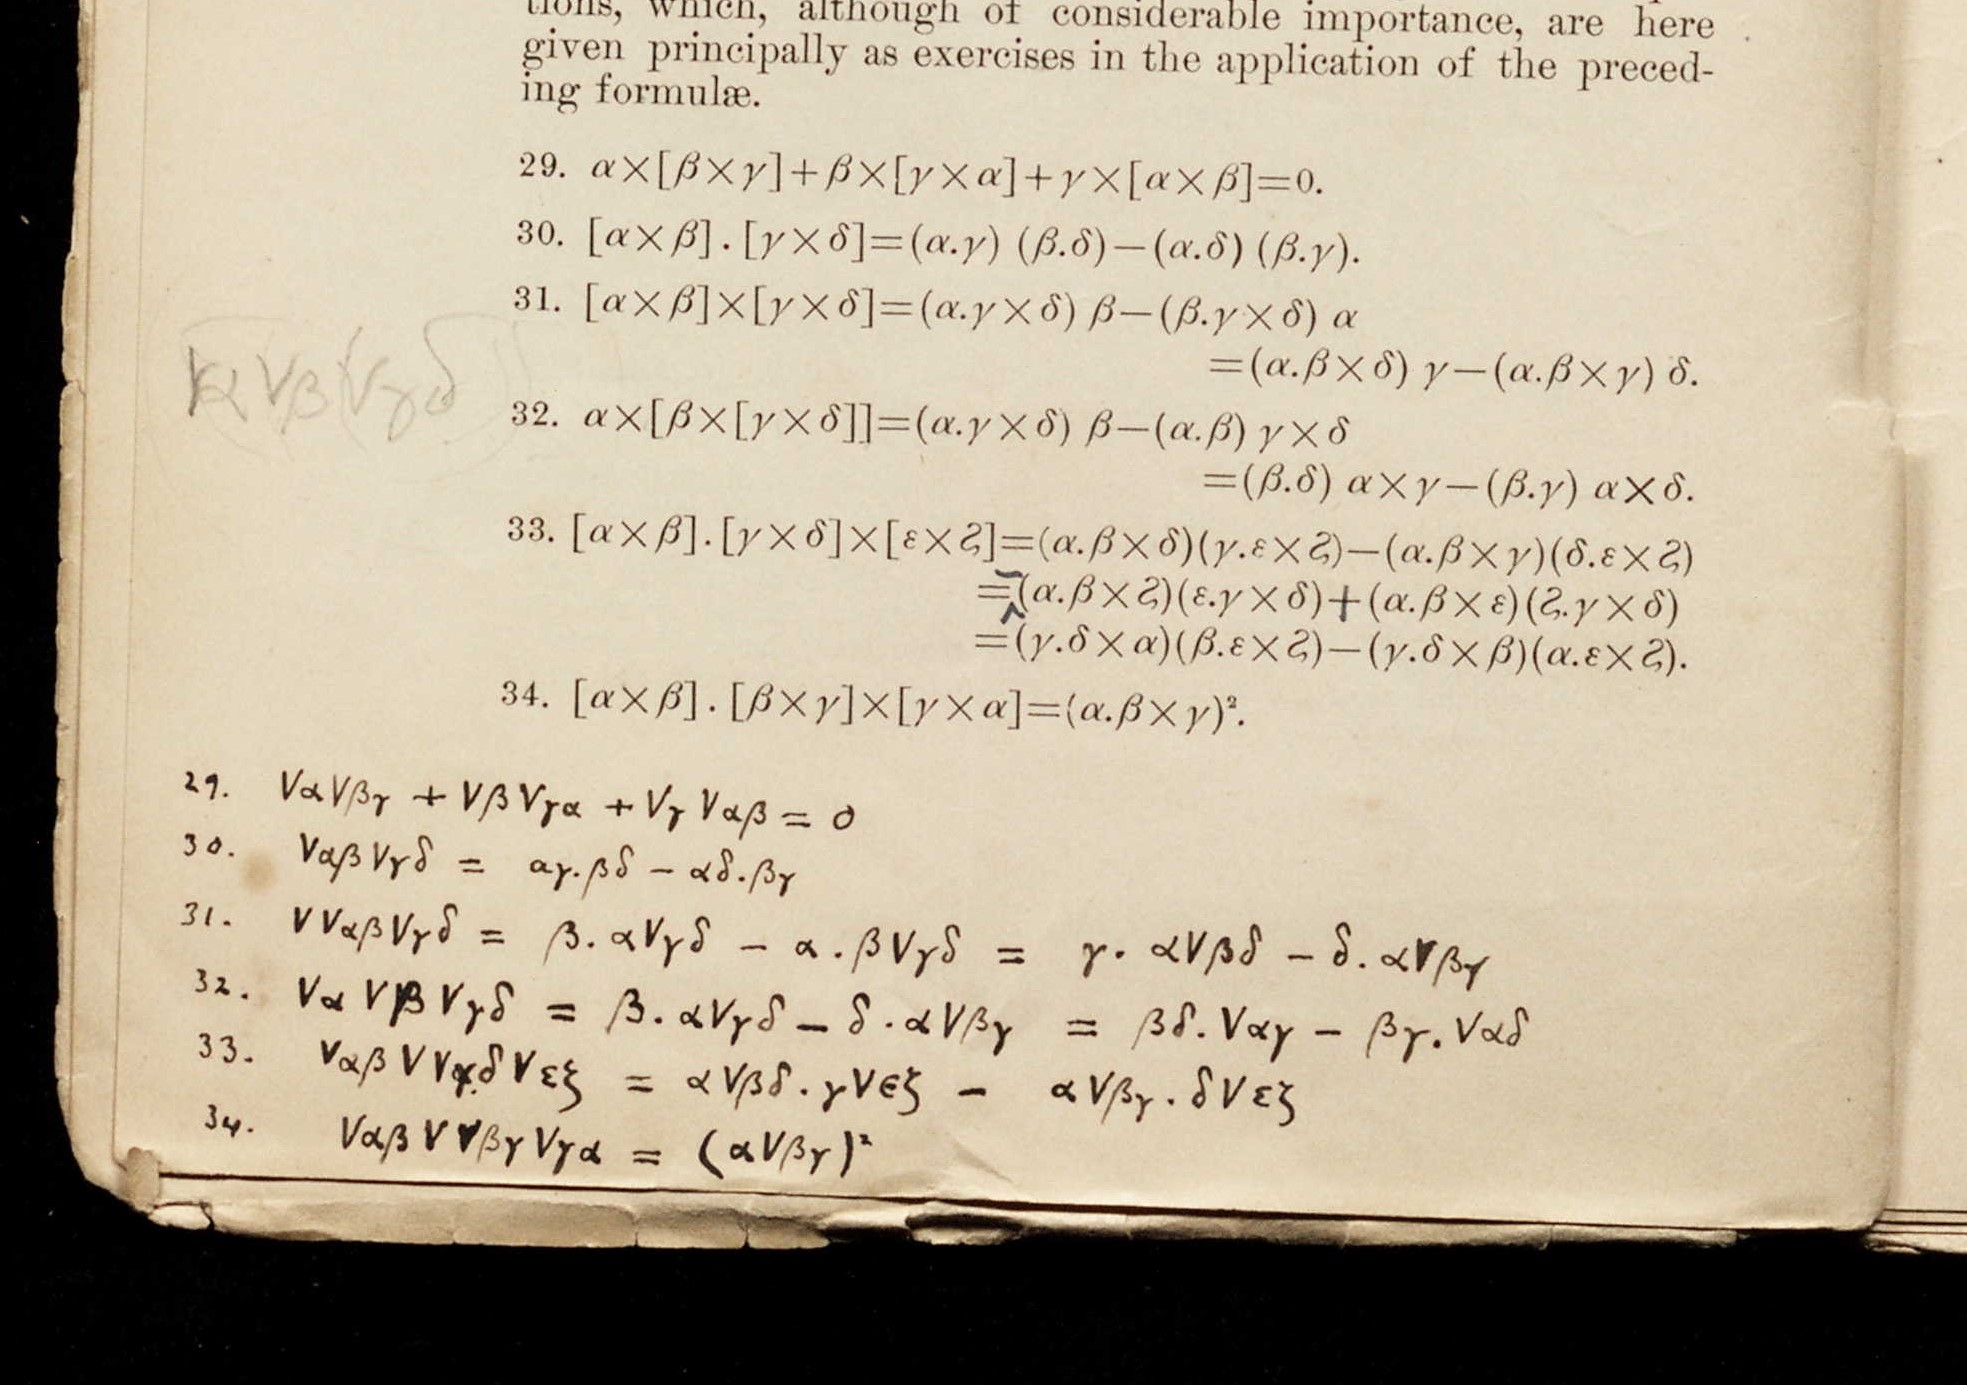 tions, which, although of considerable importance, are here
given principally as exercises in the application of the preced-
ing formulæ.
29. α×[β×γ]+β×[γ×α]+γ×[α×β]=0.
30. [α×β].[γ×δ]=(α.γ) (β.δ)−(α.δ) (β.γ).
31. [α×β]×[γ×δ]=(α.γ×δ) β−(β.γ×δ) α
=(α.β×δ) γ−(α.β×γ) δ.
αVβ(Vγδ
32. α×[β×[γ×δ]]=(α.γ×δ) β−(α.β) γ×δ
=(β.δ) α×γ−(β.γ) α×δ.
33. [α×β].[γ×δ]×[ε×ζ]=(α.β×δ)(γ.ε×ζ)−(α.β×γ)(δ.ε×ζ)
=−(α.β×ζ)(ε.γ×δ)+(α.β×ε)(ζ.γ×δ)
=(γ.δ×α)(β.ε×ζ)−(γ.δ×β)(α.ε×ζ).
34. [α×β].[β×γ]×[γ×α]=(α.β×γ)².
29. VαVβγ + VβVγα + VγVαβ = 0
30. VαβVγδ = αγ.βδ − αδ.βγ
31. VVαβVγδ = β.αVγδ − α.βVγδ = γ.αVβδ − δ.αVβγ
32. VαVβVγδ = β.αVγδ − δ.αVβγ = βδ.Vαγ − βγ.Vαδ
33. VαβVVγδVεζ = αVβδ.γVεζ − αVβγ.δVεζ
34. VαβVVβγVγα = (αVβγ)²